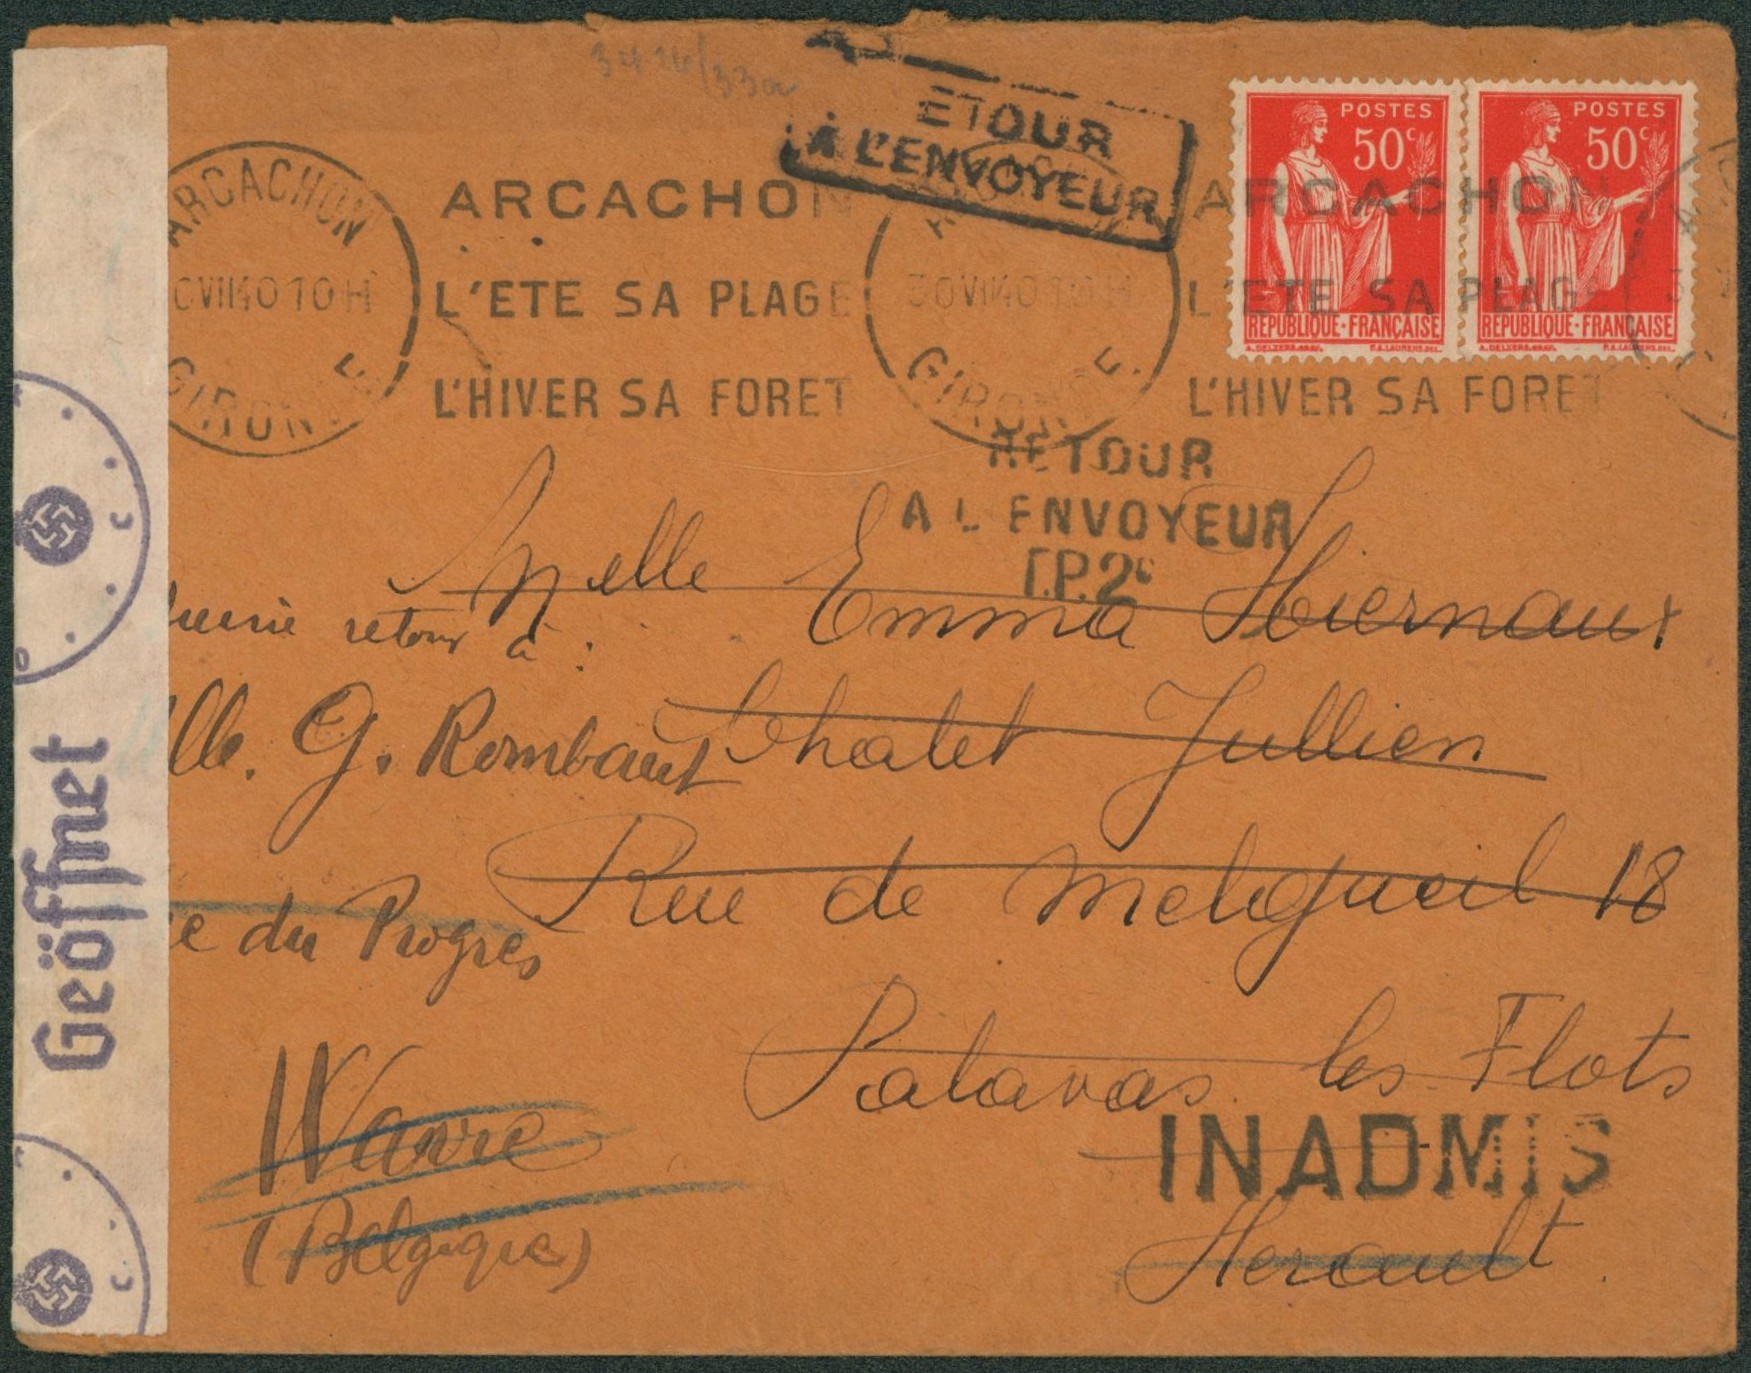 ETOUR
À L'ENVOYEUR
POSTES
50c
REPUBLIQUE·FRANÇAISE
POSTES
50c
REPUBLIQUE·FRANÇAISE
ARCACHON
0VII40 10H
GIRON E.
ARCACHON
L'ETE SA PLAGE
L'HIVER SA FORET
30VII40 10H
GIRONDE.
ARCACHON
L'ETE SA PLAGE
L'HIVER SA FORET
RETOUR
A L ENVOYEUR
T.P.2c
Melle Emma Hiernaux
Chalet Jullien
Rue de Melgueil 18
Palavas les Flots
INADMIS
Herault.
retour à :
lle. G. Rombaut
e du Progres
Wavre
(Belgique)
Geöffnet
C
C